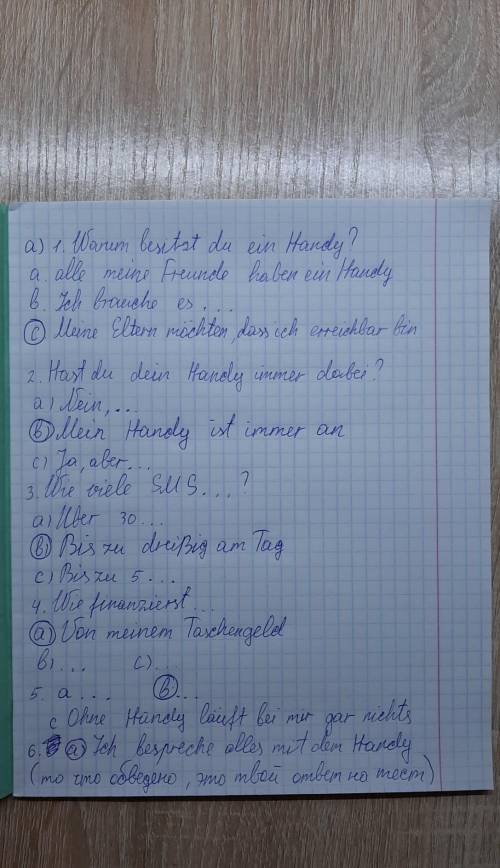 a) 1. Warum besitzt du ein Handy?
a. alle meine Freunde haben ein Handy
b. Ich brauche es . . .
c Meine Eltern möchten, dass ich erreichbar bin
2. Hast du dein Handy immer dabei?
a) Nein, . . .
b) Mein Handy ist immer an
c) Ja, aber . . .
3. Wie viele SMS . . . ?
a) Über 30 . . .
b) Bis zu dreißig am Tag
c) Bis zu 5 . . .
4. Wie finanzierst . . .
a) Von meinem Taschengeld
b) . . . c) . . .
5. a . . . b . . .
c Ohne Handy läuft bei mir gar nichts
6. a) Ich bespreche alles mit dem Handy
(то что обведено, это твой ответ на тест)